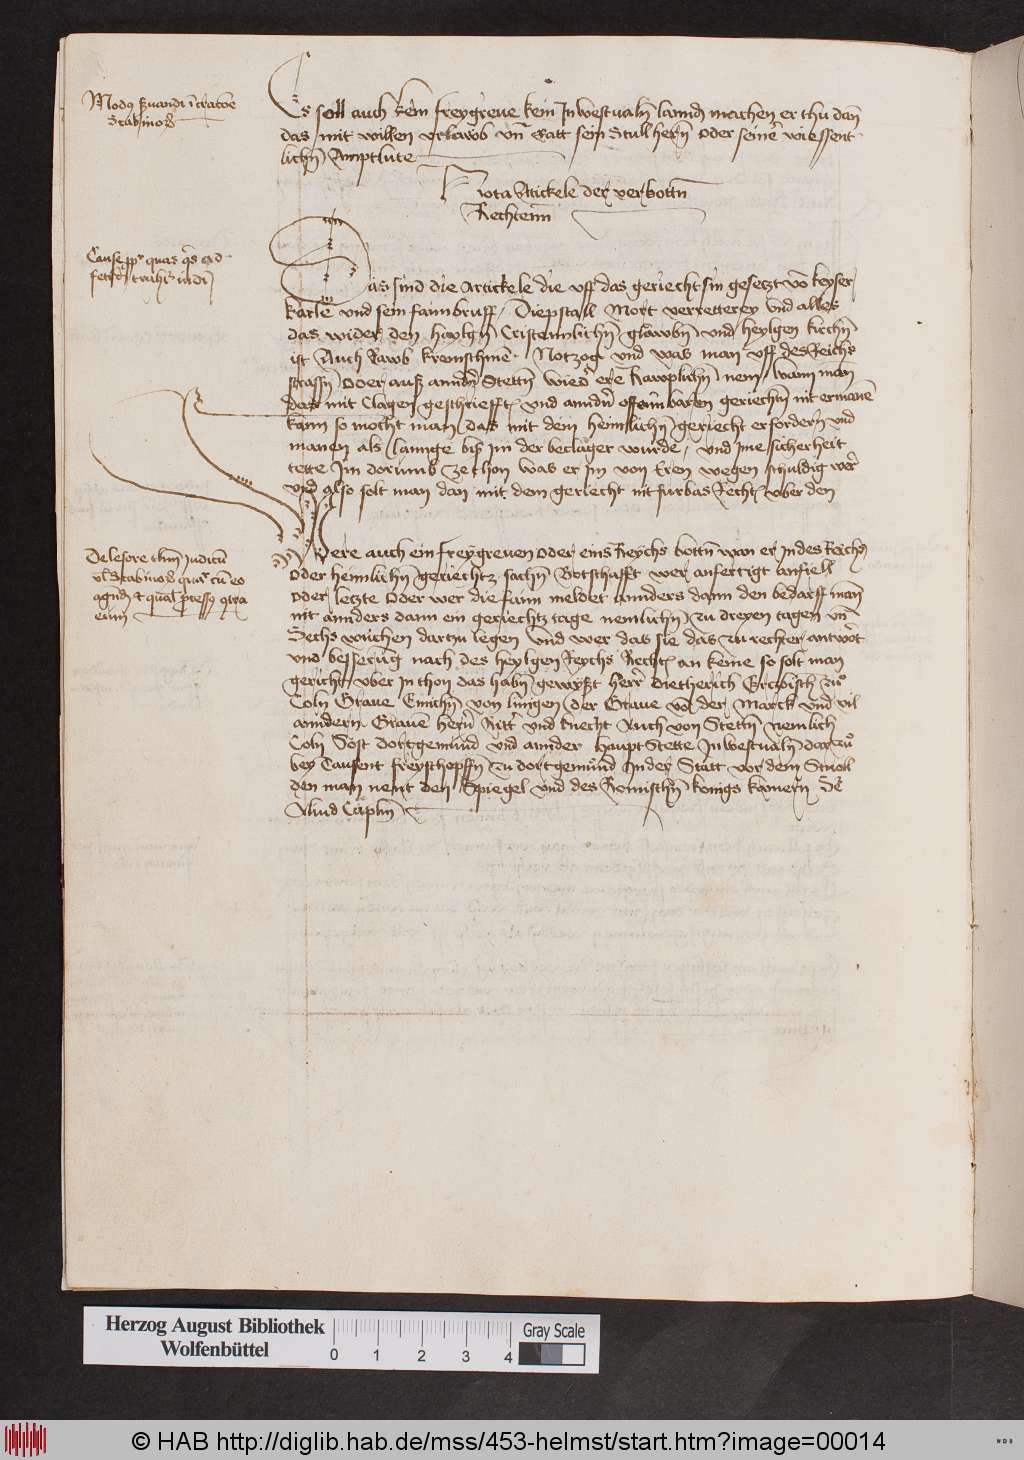 Modus servandi in creatione
Scabinorum
Es soll auch kein freygreue kein In westualn lannd machen er thu dan
das mit willen vrlawb vnd Ratt sein Stullhern oder seiner wiessent
lichn Amptlute
Nota Artickele der verbottn
Rechtenn
Cause propter quas quis ad
trahi
Das sind die Artickele die vff das geriecht sin gesetzt von keyser
karle vnd sein faimbruff / Diepstall Mort verretterey vnd alles
das wider den haylgn Cristennlichn glawbn vnd heylgen kirchn
ist Auch Rawb kremschme Notzog vnd was man vff des Reichs
strassn oder auß anndn Stettn wieder ere Rawplichn nem / wann man
das mit Clagen geschriefft vnd anndn offennbaren geriechn nit ermane
kann so mocht man das mit dem heimlichn geriecht erfordern vnd
manen als lannge biß im der beclager wurde / vnd ine sicherheit
tette Im dorumb ze thon was er im von Eren wegen schuldig wer
vnd also solt man dan mit dem geriecht nit furbas Recht vber den
De lesore
Scabinorum cum eo
agendum et qualis processus contra
eum
Were auch ein freygreuen oder eins Reychs bottn wan er in des Reichs
oder heimlichn geriechtz sachn Botschafft wer anfertigt anfiell
oder letzte oder wer die faim meldet annders dann den bedarff man
nit annders dann ein geriechtz tage nemlichn zu dreyen tagen vnd
Sechs wuchen dartzu legen vnd wer das sie das zu rechter antwort
vnd besserung nach des heylgen Reychs Recht an keme so solt man
gericht vber in thon das habn gewyßt herr Dietherich Ertzbisch zu
Coln Graue Emichn von liningen der Graue von der Marck vnd vil
anndern Grauen hern Ritter vnd knecht Auch von Stettn nemlich
Coln Sost dortgemund vnd annder haupt Stette In westualn dar zu
bey Tausent freyschopffn zu dortgemund In der Statt vor dem Stuell
den man nent den Spiegel vnd des Romischn konigs kamern Se

Herzog August Bibliothek
Wolfenbüttel
0 1 2 3 4
Gray Scale
© HAB http://diglib.hab.de/mss/453-helmst/start.htm?image=00014